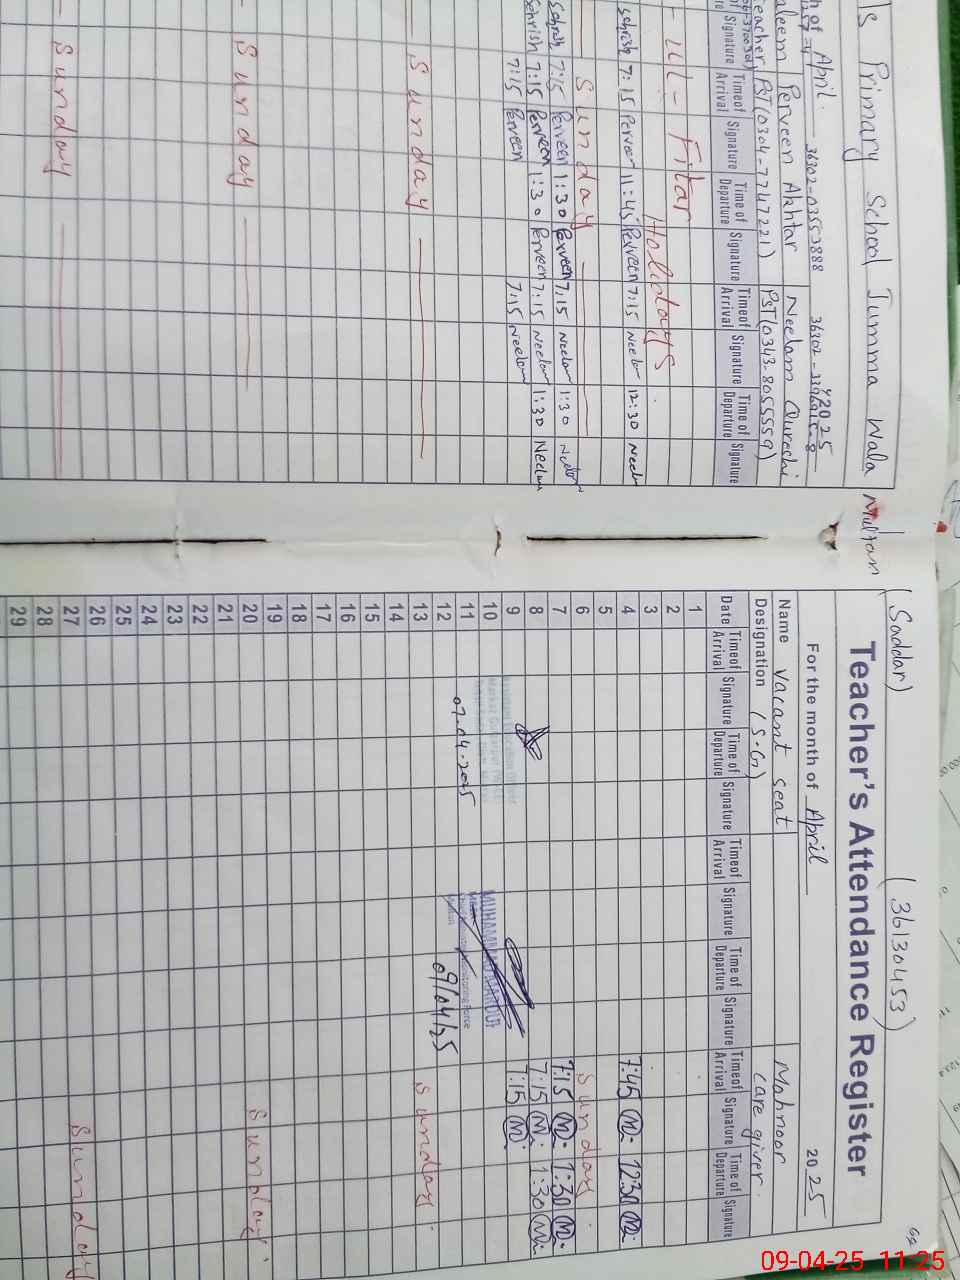 ls Primary School Jumma Wala Multan (Saddar) (36130453)
Teacher's Attendance Register
h of April
36302-0353888
42025
For the month of April 2025
aleem Perveen Akhtar
Neelam Qureshi
Name Vacant seat
Mahnoor
eacher PST (0304-7747221)
PST (0343-8055559)
Designation (S.G)
Care giver.
Signature Time of Arrival Signature Time of Departure Signature Time of Arrival Signature Time of Departure Signature
Date Time of Arrival Signature Time of Departure Signature Time of Arrival Signature Time of Departure Signature Time of Arrival Signature Time of Departure Signature
1
-ul-Fitar Holidays
2
3
Sehrish 7:15 Perveen 11:45 Perveen 7:15 Neelam 12:30 Neel
4 7:45 M. 12:30 M.
5
Sunday
6 Sunday
Sehrish 7:15 Perveen 1:30 Perveen 7:15 Neelam 1:30 Neelam
7 7:15 M. 1:30 M.
Sehrish 7:15 Perveen 1:30 Perveen 7:15 Neelam 1:30 Neelam
8 7:15 M. 1:30 M.
7:15 Perveen 7:15 Neelam
9 7:15 M.
10
MUHAMMAD MAROUF
11
07-04-2025
12
09/04/25
Sunday
13 Sunday
14
15
16
17
18
19
Sunday
20 Sunday
21
22
23
24
25
26
Sunday
27 Sunday
28
29
09-04-25 11:25